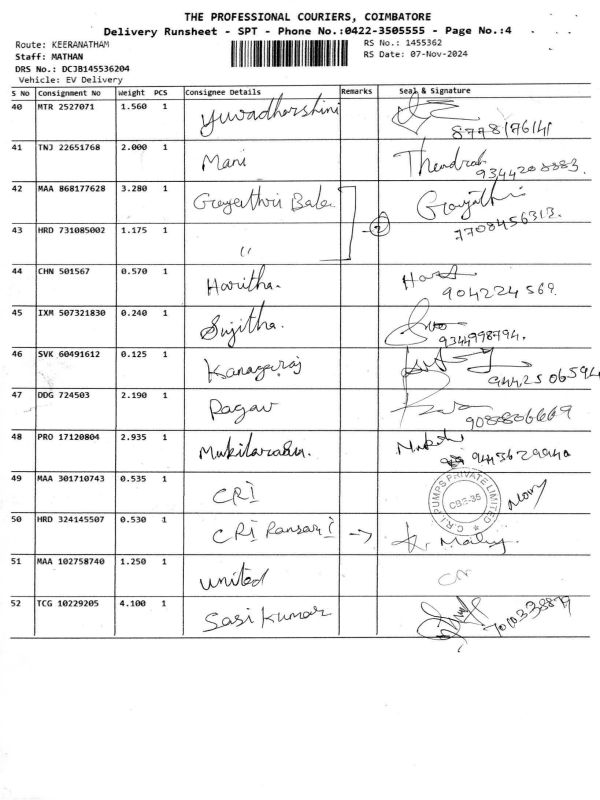 THE PROFESSIONAL COURIERS, COIMBATORE
Delivery Runsheet - SPT - Phone No.:0422-3505555 - Page No.:4
Route: KEERANATHAM
RS No.: 1455362
Staff: MATHAN
RS Date: 07-Nov-2024
DRS No.: DCJB145536204
Vehicle: EV Delivery
S No Consignment No Weight PCS Consignee Details Remarks Seal & Signature
40 MTR 2527071 1.560 1 Yuvadharshini
8778176141
41 TNJ 22651768 2.000 1 Mani
9344208883.
42 MAA 868177628 3.280 1 Gayathri Bala
Gayathri
7708456313.
43 HRD 731085002 1.175 1 "
2
44 CHN 501567 0.570 1 Haritha.
904224569.
45 IXM 507321830 0.240 1 Sujitha.
9344998794.
46 SVK 60491612 0.125 1 Kanagaraj
9442506594
47 DDG 724503 2.190 1 Ragav
9080806669
48 PRO 17120804 2.935 1
49 MAA 301710743 0.535 1 CRI
C.R.I. PUMPS PRIVATE LIMITED
CBE-35
50 HRD 324145507 0.530 1 CRI →
51 MAA 102758740 1.250 1 united
52 TCG 10229205 4.100 1 Sasi kumar